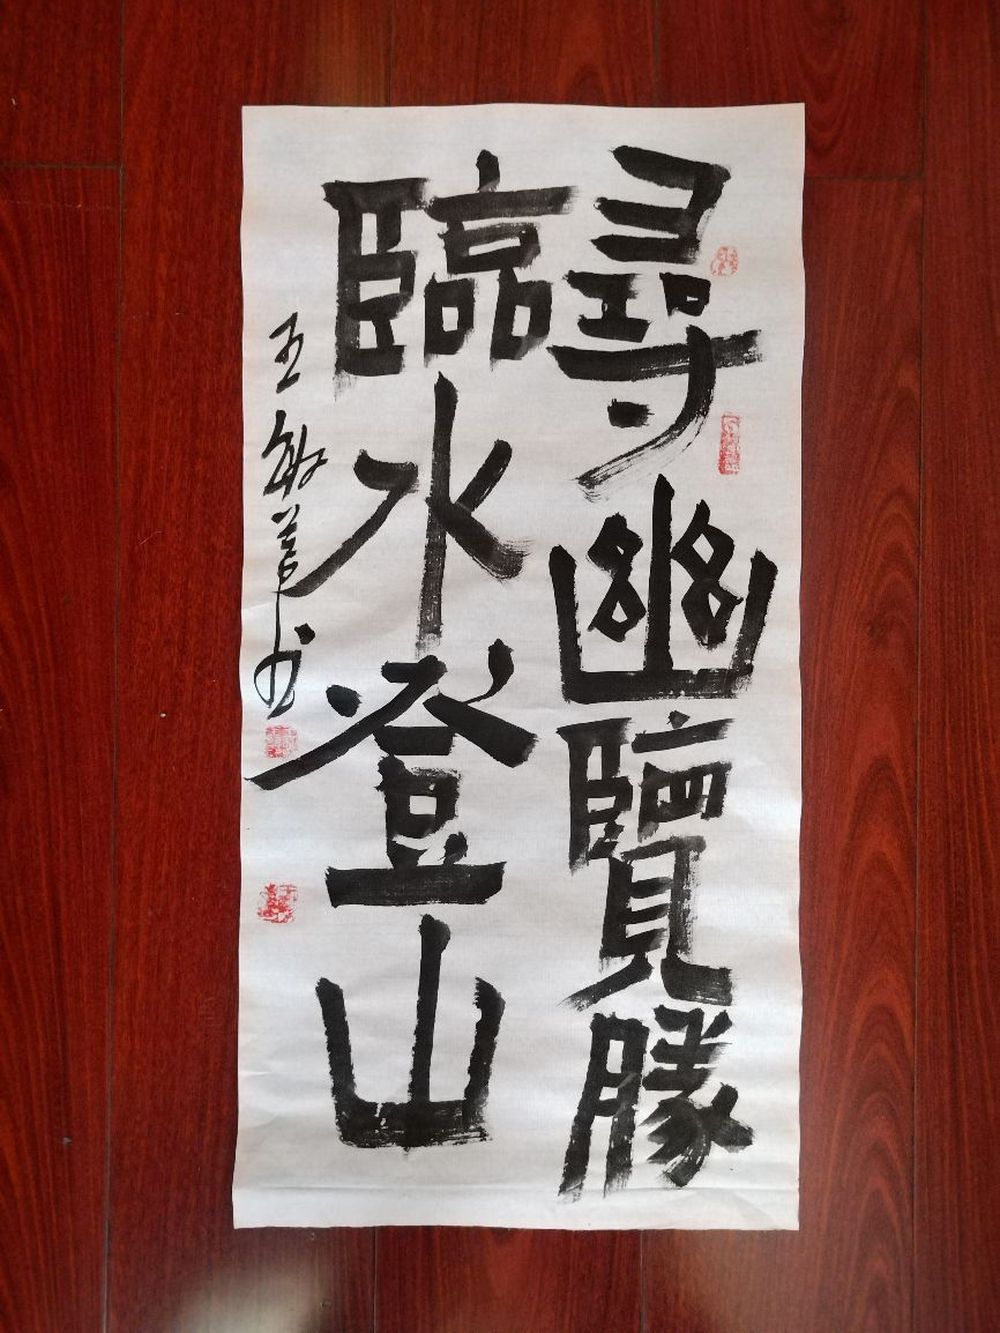 尋幽覽勝
臨水登山
王敏華书